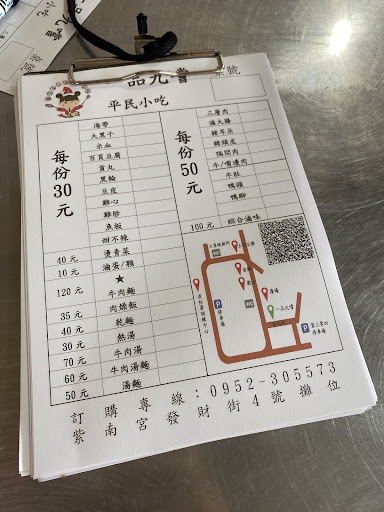 一品元嘗
桌號
平民小吃
每份30元
海帶
大黑干
米血
百頁豆腐
貢丸
黑輪
豆皮
雞心
雞胗
魚板
甜不辣
40元 燙青菜
10元 滷蛋/顆
★
120元 牛肉麵
35元 肉燥飯
40元 乾麵
30元 熱湯
70元 牛肉湯
60元 牛肉湯麵
50元 湯麵
每份50元
三層肉
滷大腸
豬耳朵
豬頭皮
隔間肉
牛/嘴邊肉
牛肚
鴨頭
鴨腳
100元 綜合滷味
WC
WC
P 停車場
廣場
一品元嘗
P 第三公有停車場
訂購專線:0952-305573
紫南宮發財街4號攤位